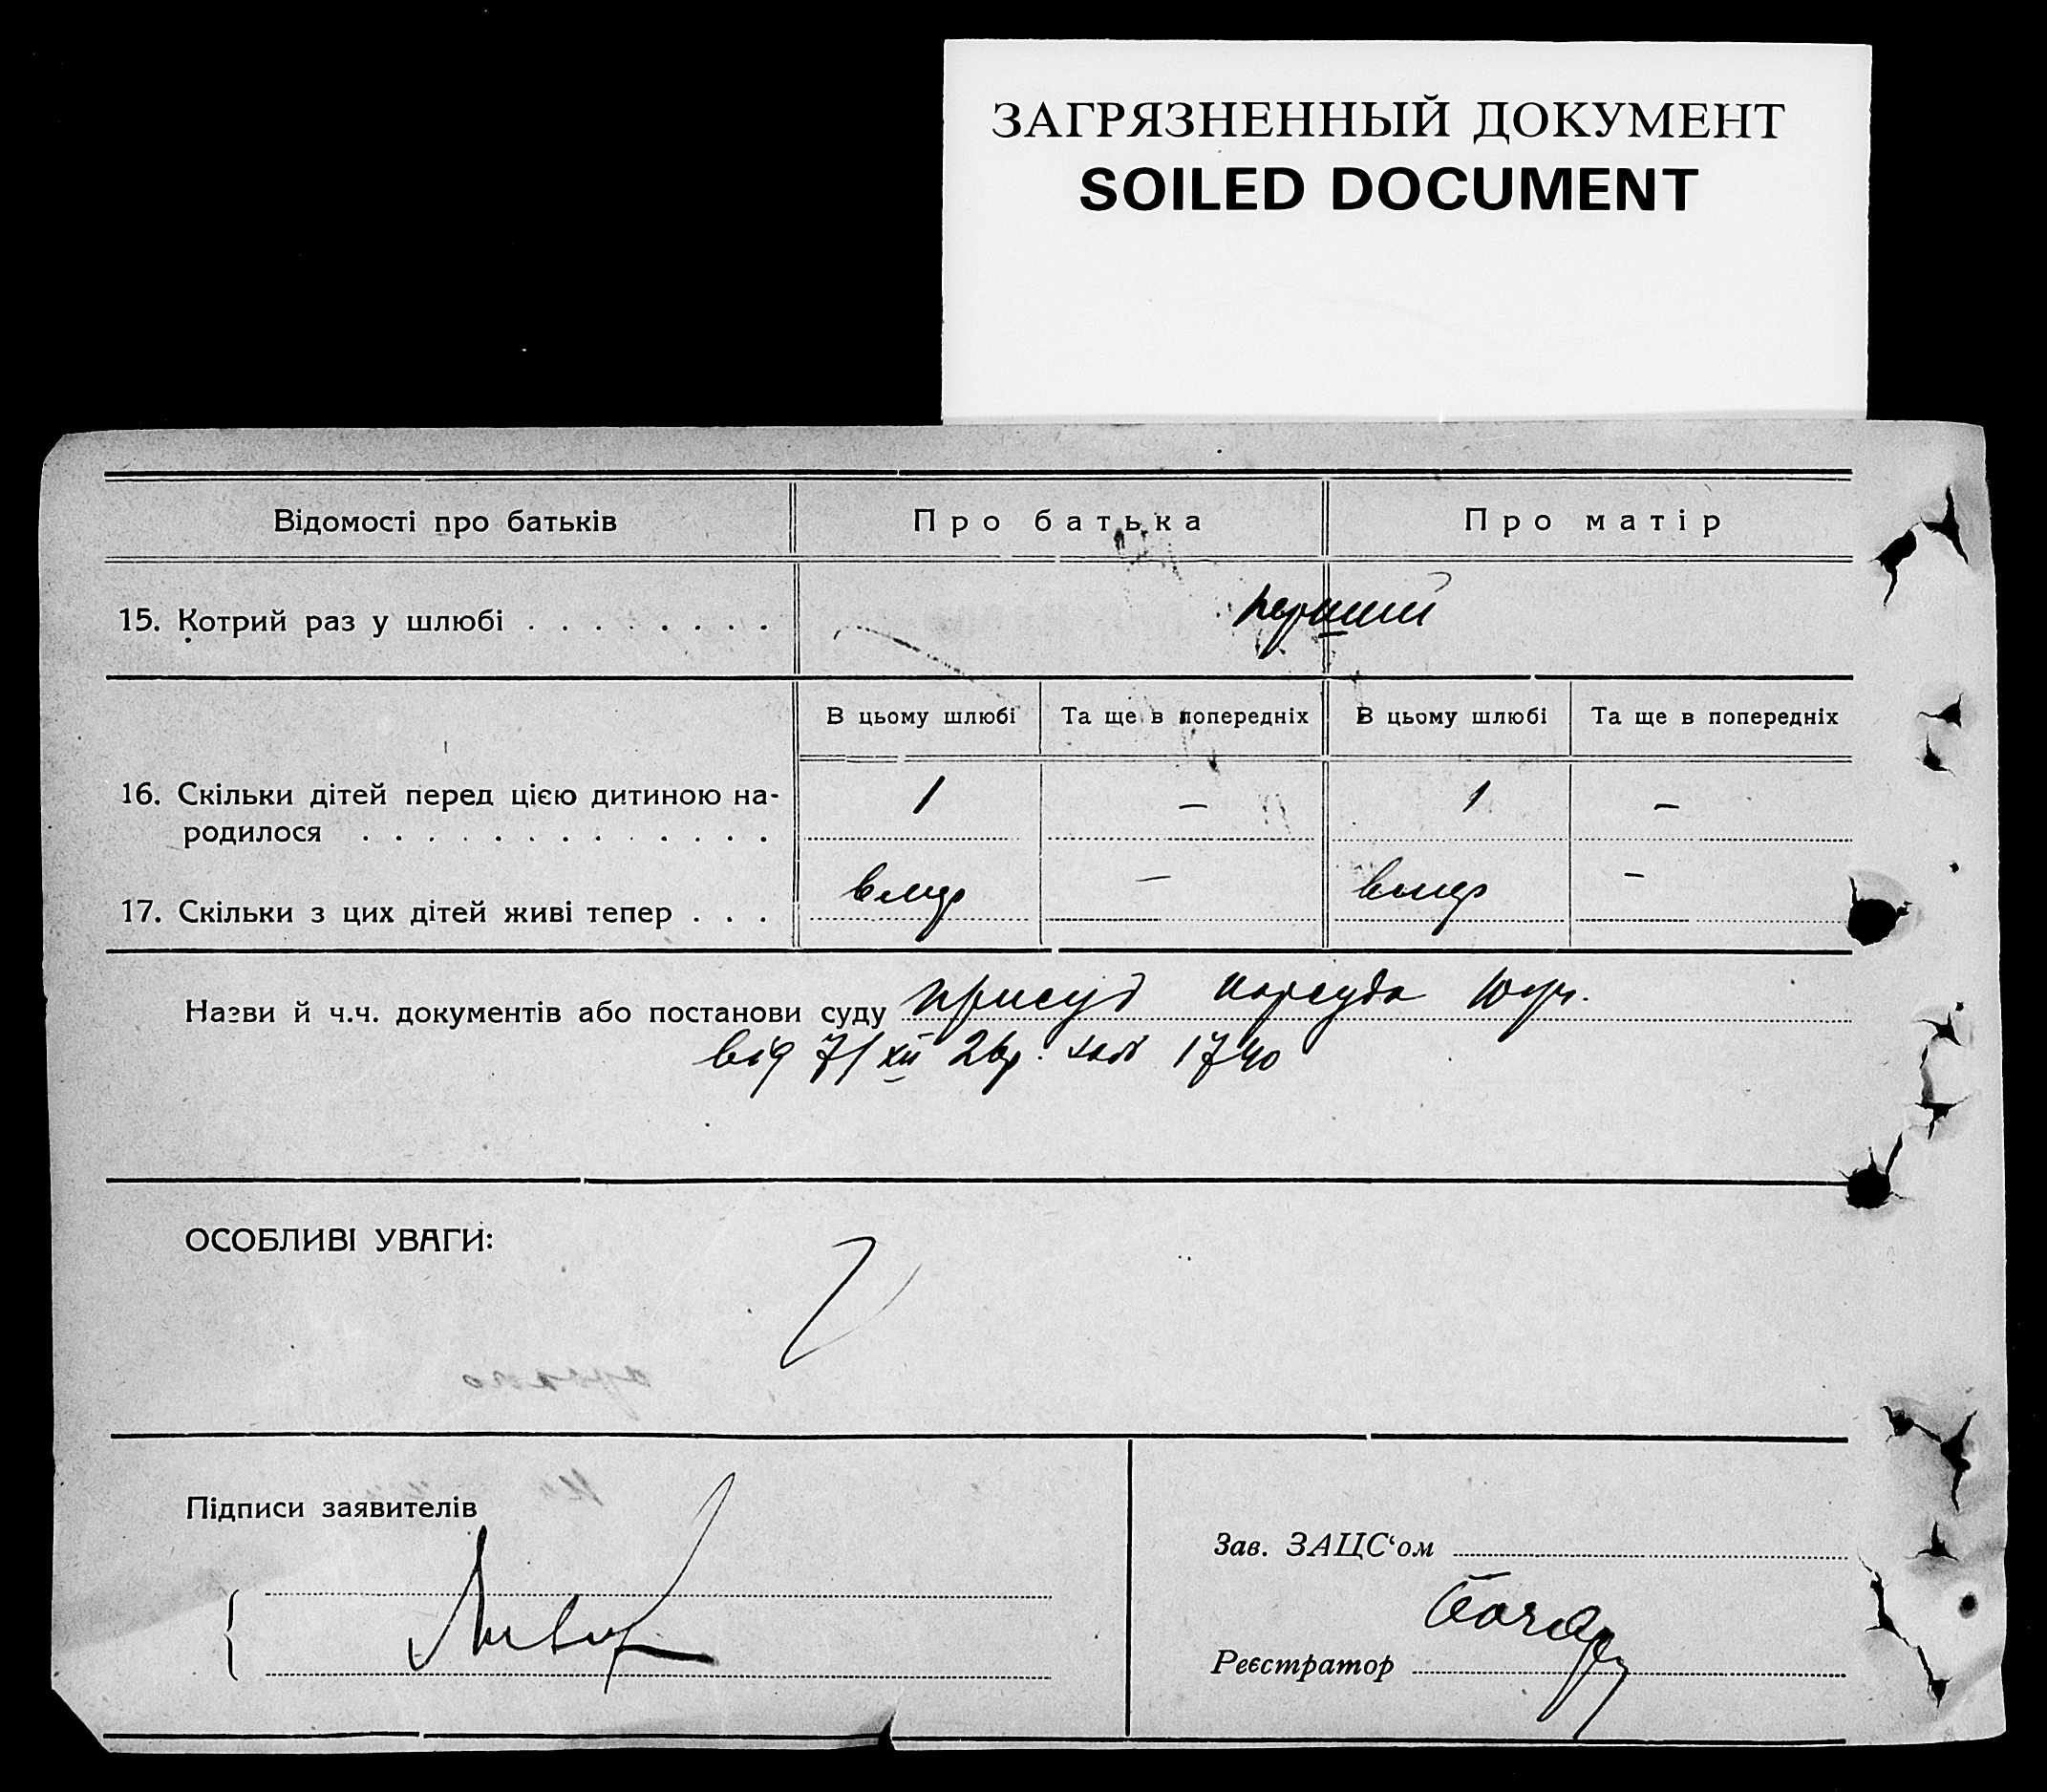 ЗАГРЯЗНЕННЫЙ ДОКУМЕНТ
SOILED DOCUMENT
Відомості про батьків
Про батька
Про матір
15. Котрий раз у шлюбі . . . . . . . .
перший
В цьому шлюбі
Та ще в попередніх
В цьому шлюбі
Та ще в попередніх
16. Скільки дітей перед цією дитиною на-
родилося . . . . . . . . . . . . .
1
—
1
—
17. Скільки з цих дітей живі тепер . . .
вмер
—
вмер
—
Назви й ч.ч. документів або постанови суду присуд нарсуда
від 7/XII 26р. 1740
ОСОБЛИВІ УВАГИ:
Підписи заявителів
Зав. ЗАЦС‘ом
Реєстратор